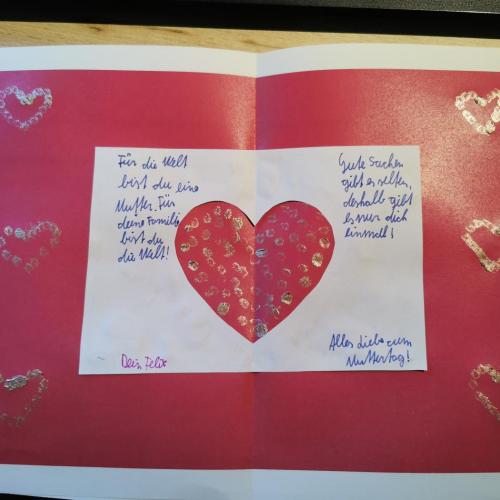 Für die Welt
bist du eine
Mutter. Für
deine Familie
bist du
die Welt!
Gute Sachen
gibt es selten,
deshalb gibt
es nur dich
einmal!
Dein Felix
Alles Liebe zum
Muttertag!